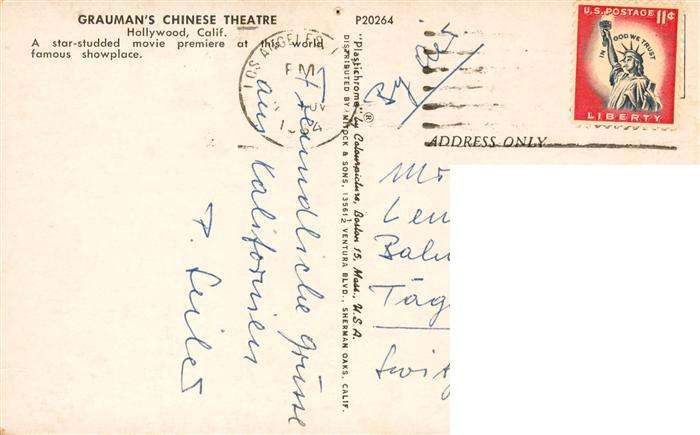 GRAUMAN'S CHINESE THEATRE
Hollywood, Calif.
A star-studded movie premiere at this world
famous showplace.
P20264
"Plastichrome" ® by Colourpicture, Boston 15, Mass., U.S.A.
DISTRIBUTED BY MITOCK & SONS, 13561½ VENTURA BLVD., SHERMAN OAKS, CALIF.
LOS ANGELES
PM
U.S. POSTAGE 11¢
IN GOD WE TRUST
LIBERTY
ADDRESS ONLY
Freundliche Grüsse
aus Kalifornien
Len
Täg